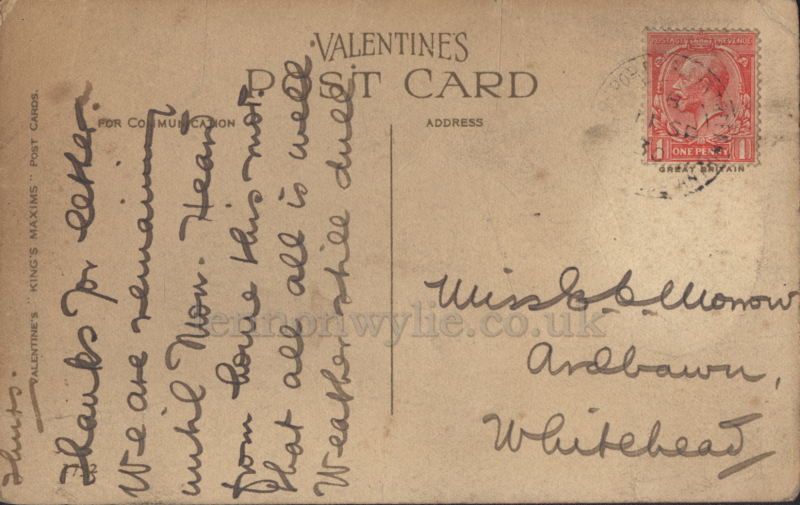 VALENTINE'S
POST CARD
FOR COMMUNICATION
ADDRESS
VALENTINE'S "KING'S MAXIMS" POST CARDS.
POSTAGE REVENUE
ONE PENNY
GREAT BRITAIN
Thurs.
Thanks for letter.
We are remaining
until Mon. Heard
from home this mor.
that all all is well
Weather still dull
Miss Morrow
Ardbawn,
Whitehead
lennonwylie.co.uk